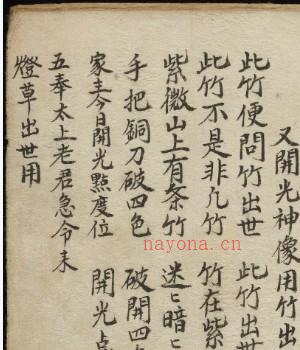 又開光神像用竹出
此竹便問竹出世 此竹出世
此竹不是非凢竹 竹在紫
紫微山上有条竹 迷〻暗〻
手把銅刀破四色 破開四
家主今日開光點度位 開光点
五奉太上老君急令来
燈草出世用
nayona.cn